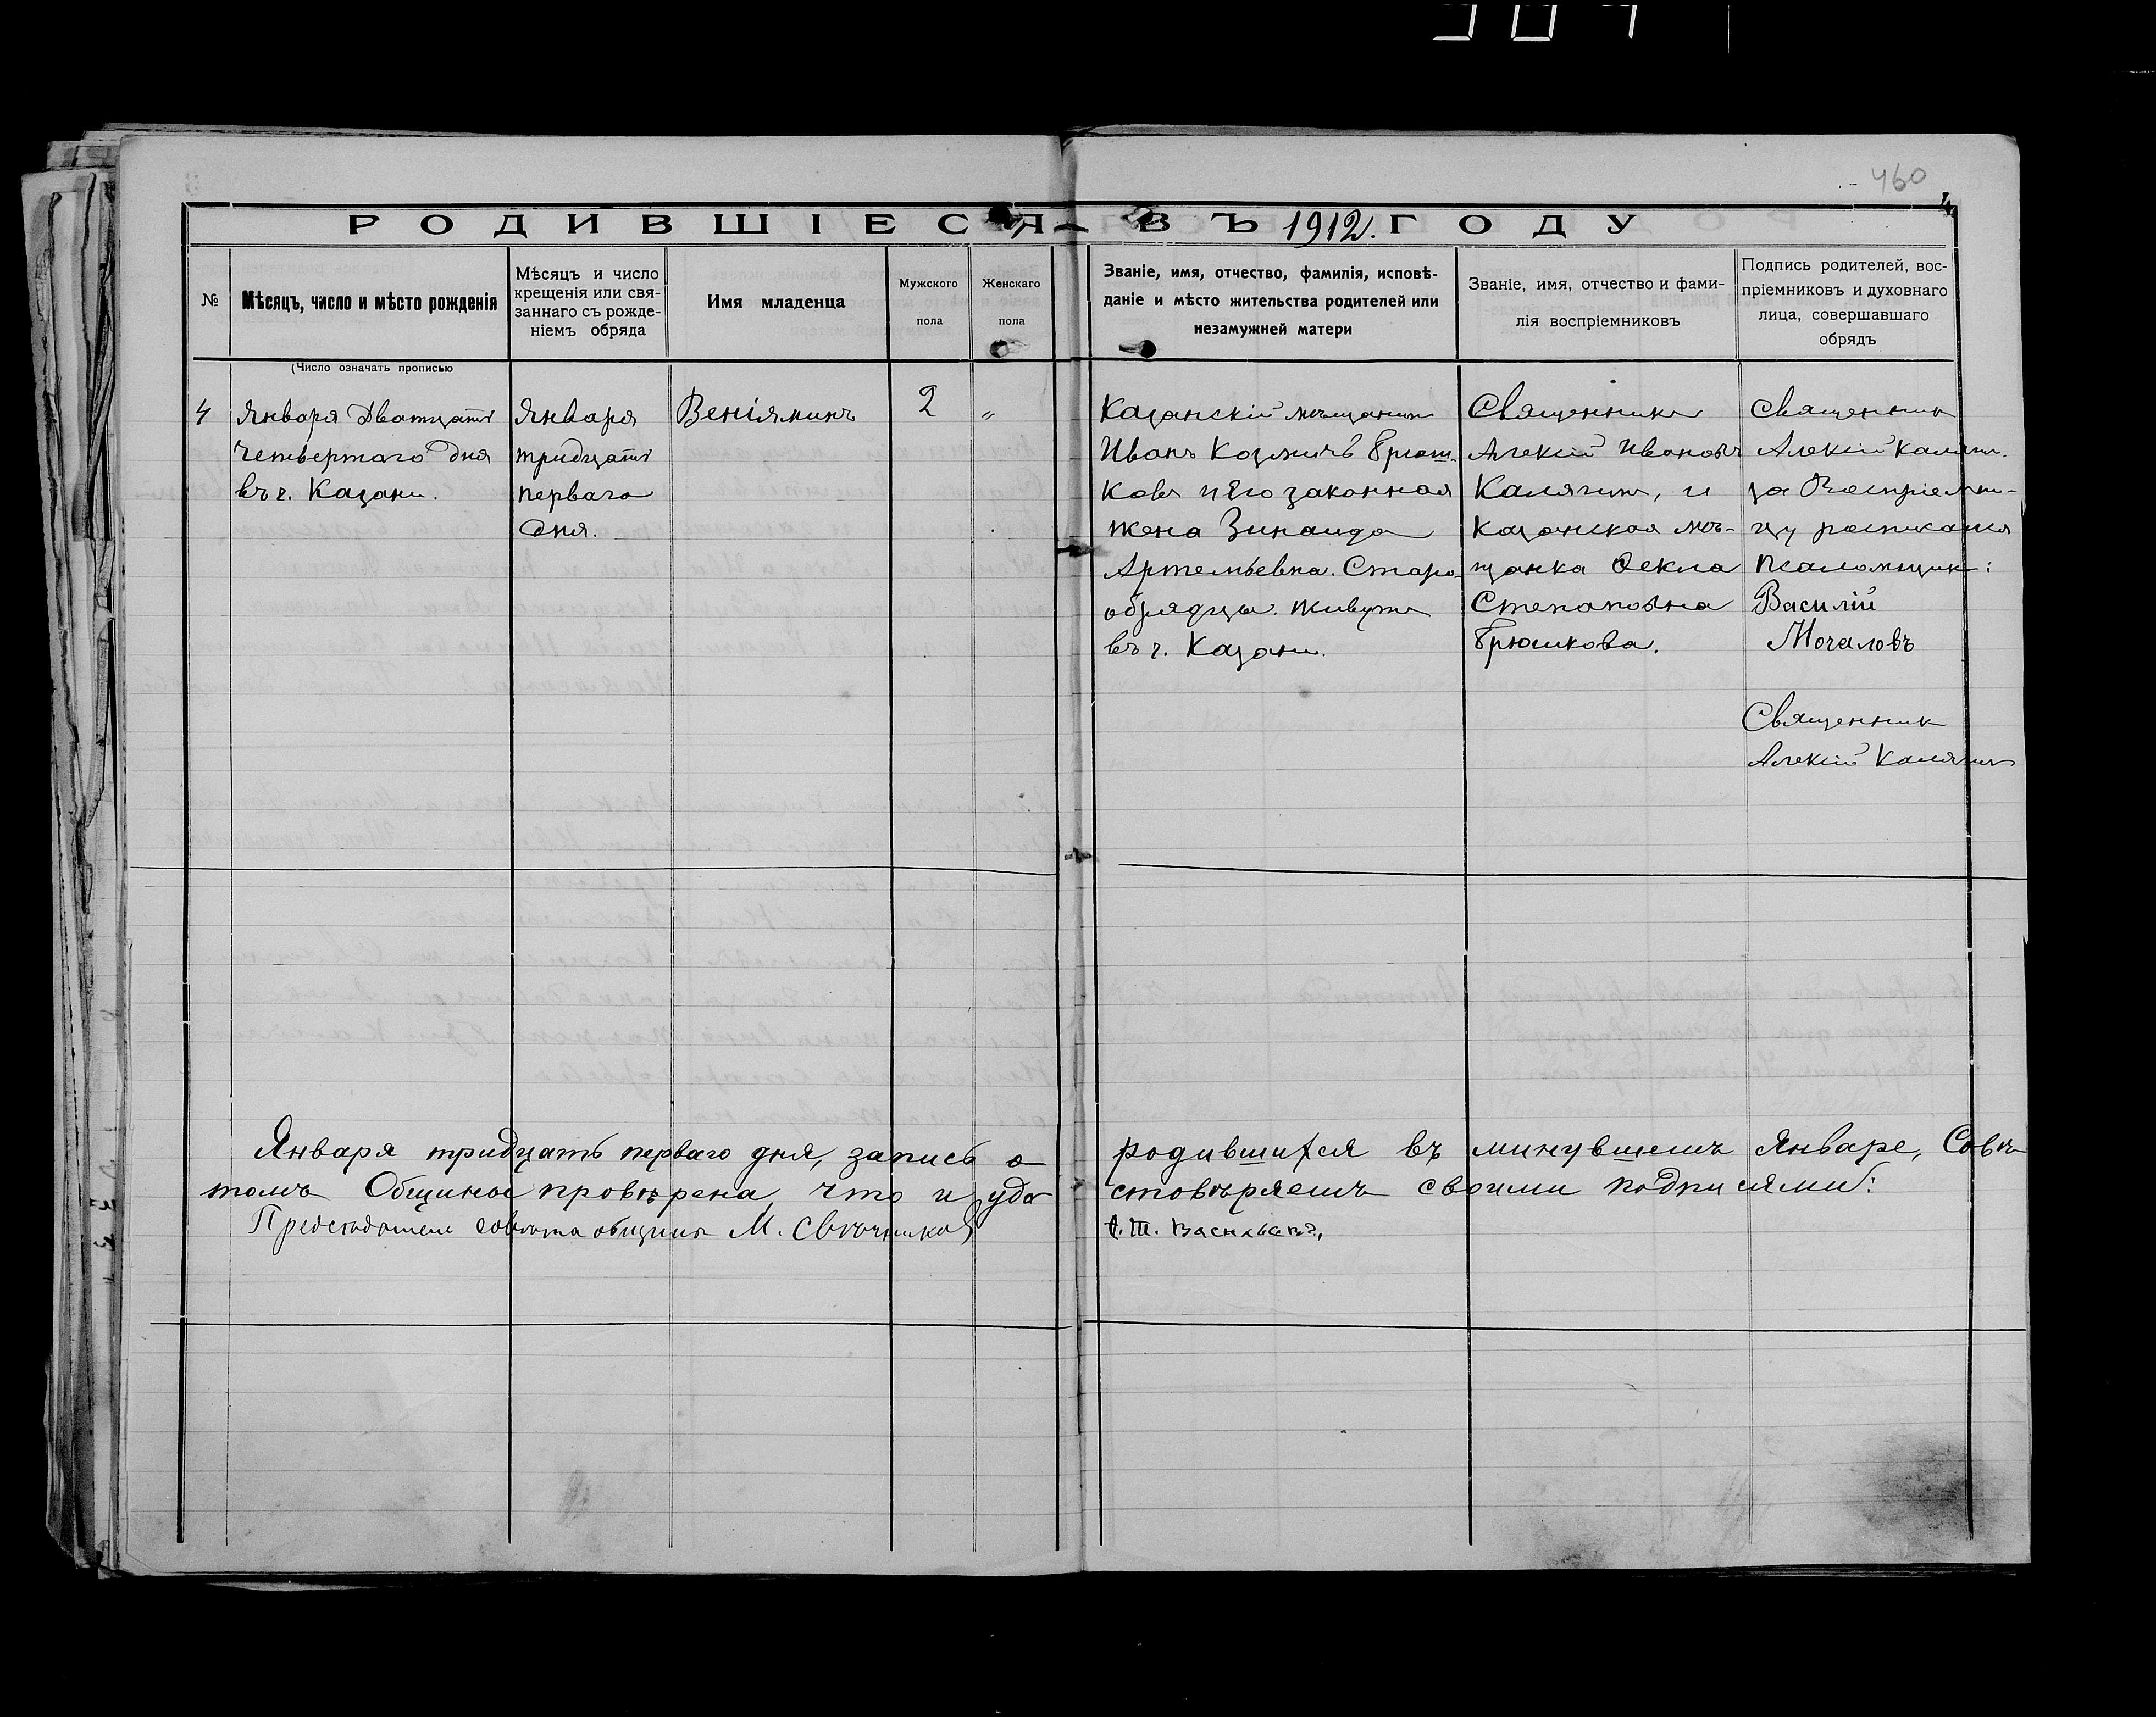 460
4
РОДИВШІЕСЯ ВЪ 1912. ГОДУ
№
Мѣсяцъ, число и мѣсто рожденія
Мѣсяцъ и число
крещенія или свя-
заннаго съ рожде-
ніемъ обряда
Имя младенца
Мужского
пола
Женскаго
пола
Званіе, имя, отчество, фамилія, исповѣ-
даніе и мѣсто жительства родителей или
незамужней матери
Званіе, имя, отчество и фами-
лія воспріемниковъ
Подпись родителей, вос-
пріемниковъ и духовнаго
лица, совершавшаго
обрядъ
(Число означать прописью
4
Января Дватцать
четвертаго дня
въ г. Казани.
Января
тридцать
перваго
дня.
Веніяминъ
2
"
Казанскій мѣщанин
Иванъ Козмичъ Брюш-
ковъ и Его законная
жена Зинаида
Артемьевна. Старо-
обрядцы. живутъ
въ г. Казани.
Священникъ
Алекѣй Ивановъ
Калягинъ, и
Казанская мѣ-
щанка Ѳекла
Степановна
Брюшкова.
Священник
Алекѣй Калягин.
за Воспріемни-
цу росписался
Псаломщик:
Василій
Мочаловъ
Священник
Алекѣй Калягинъ
Января тридцать перваго дня, запись о родившихся въ минувшемъ Январе, Совѣ-
томъ Общины провѣрена, что и удо- стовѣряемъ своими подписями:
Председатель совѣта общины М. Свѣчников
Васильевъ,